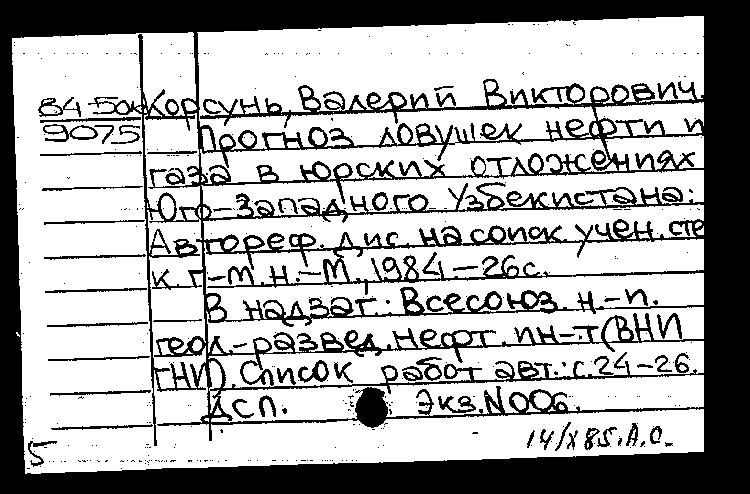 84-5ок Корсунь, Валерий Викторович.
9075 Прогноз ловушек нефти и
газа в юрских отложениях
Юго-Западного Узбекистана:
Автореф. дис. на соиск. учен. сте
к. г.-м. н. - М., 1984 - 26 с.
В надзаг.: Всесоюз. н.-и.
геол.-развед. нефт. ин-т (ВНИ
ГНИ). Список работ авт.: с. 24-26.
ДСП. Экз. N006.
14/X 85. А.О.
5